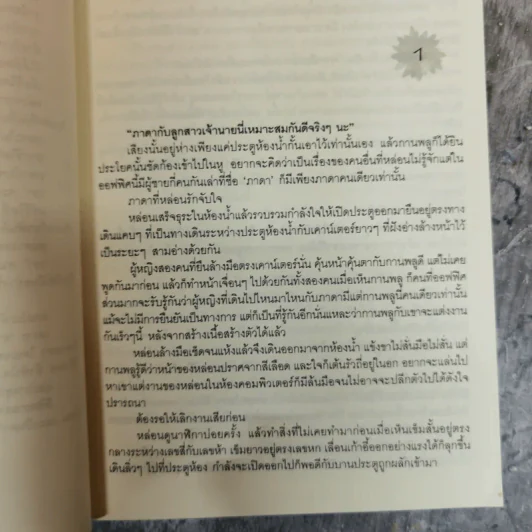 1
“ภาดากับลูกสาวเจ้านายนี่เหมาะสมกันดีจริงๆ นะ”
เสียงนั้นอยู่ห่างเพียงแค่ประตูห้องน้ำกั้นเอาไว้เท่านั้นเอง แล้วกานพลูก็ได้ยิน
ประโยคนั้นชัดก้องเข้าไปในหู อยากจะคิดว่าเป็นเรื่องของคนอื่นที่หล่อนไม่รู้จักแต่ใน
ออฟฟิศนี้มีผู้ชายกี่คนกันเล่าที่ชื่อ ‘ภาดา’ ก็มีเพียงภาดาคนเดียวเท่านั้น
ภาดาที่หล่อนรักจับใจ
หล่อนเสร็จธุระในห้องน้ำแล้วรวบรวมกำลังใจให้เปิดประตูออกมายืนอยู่ตรงทาง
เดินแคบๆ ที่เป็นทางเดินระหว่างประตูห้องน้ำกับเคาน์เตอร์ยาวๆ ที่ฝังอ่างล้างหน้าไว้
เป็นระยะๆ สามอ่างด้วยกัน
ผู้หญิงสองคนที่ยืนล้างมือตรงเคาน์เตอร์นั่น คุ้นหน้าคุ้นตากับกานพลูดี แต่ไม่เคย
พูดกันมาก่อน แล้วก็ทำหน้าเจื่อนๆ ไปด้วยกันทั้งสองคนเมื่อเห็นกานพลู ก็คนที่ออฟฟิศ
ส่วนมากจะรับรู้กันว่าผู้หญิงที่เดินไปไหนมาไหนกับภาดามีแต่กานพลูนี่คนเดียวเท่านั้น
แม้จะไม่มีการยืนยันเป็นทางการ แต่ก็เป็นที่รู้กันอีกนั่นแหละว่ากานพลูกับเขาจะแต่งงาน
กันเร็วๆนี้ หลังจากสร้างเนื้อสร้างตัวได้แล้ว
หล่อนล้างมือเช็ดจนแห้งแล้วจึงเดินออกมาจากห้องน้ำ แข้งขาไม่สั่นมือไม่สั่น แต่
กานพลูรู้ดีว่าหน้าของหล่อนปราศจากสีเลือด และใจก็เต้นรัวถี่อยู่ในอก อยากจะแล่นไป
หาเขาแต่งานของหล่อนในห้องคอมพิวเตอร์ก็มีล้นมือจนไม่อาจจะปลีกตัวไปได้ดังใจ
ปรารถนา
ต้องรอให้เลิกงานเสียก่อน
หล่อนดูนาฬิกาบ่อยครั้ง แล้วทำสิ่งที่ไม่เคยทำมาก่อนเมื่อเห็นเข็มสั้นอยู่ตรง
กลางระหว่างเลขสี่กับเลขห้า เข็มยาวอยู่ตรงเลขหก เลื่อนเก้าอี้ออกอย่างแรงได้ก็ลุกขึ้น
เดินลิ่วๆ ไปที่ประตูห้อง กำลังจะเปิดออกไปก็พอดีกับบานประตูถูกผลักเข้ามา